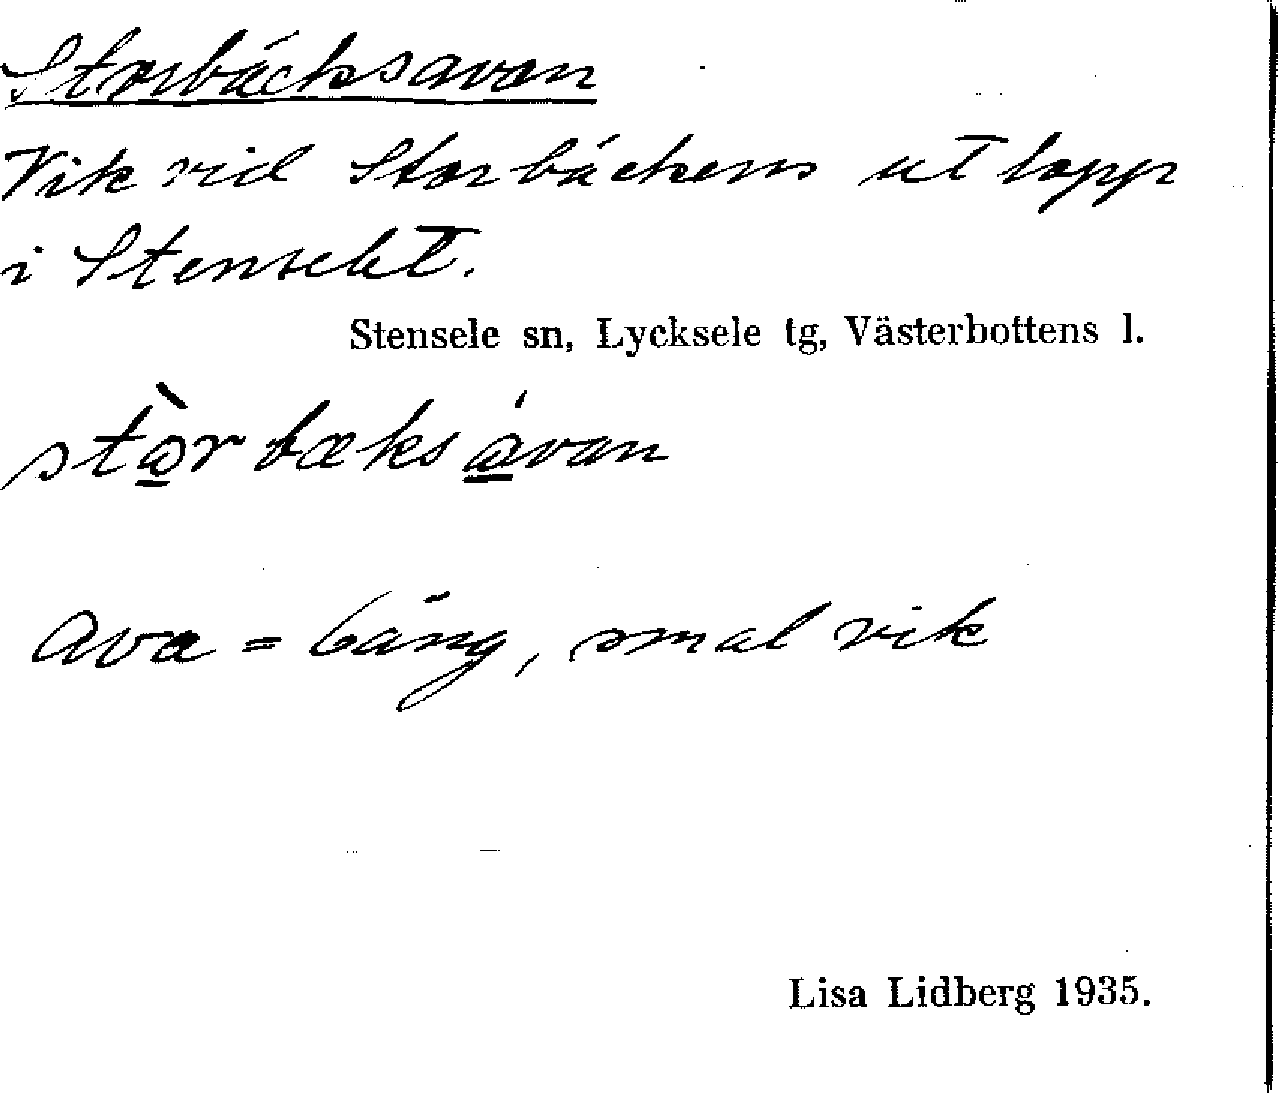 Storbäcksavan
Vik vid Storbäckens utlopp
i Stenselet.
Stensele sn, Lycksele tg, Västerbottens l.
stò̱rbæksá̱van
Ava = lång, smal vik
Lisa Lidberg 1935.